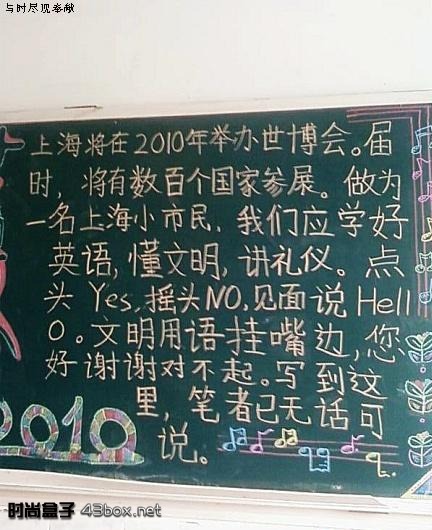 与时尽现奉献
上海将在2010年举办世博会。届
时，将有数百个国家参展。做为
一名上海小市民，我们应学好
英语，懂文明，讲礼仪。点
头Yes，摇头NO，见面说Hell
O。文明用语挂嘴边，您
好谢谢对不起。写到这
里，笔者已无话可
说。
2010
时尚盒子 43box.net